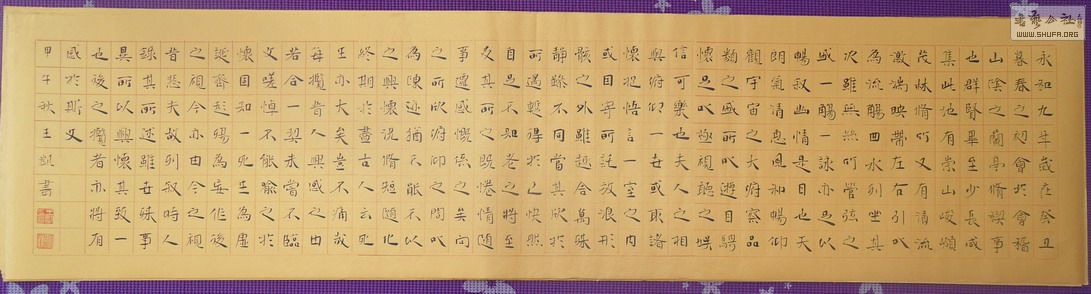 永和九年歲在癸丑
暮春之初會於會稽
山陰之蘭亭脩禊事
也群賢畢至少長咸
集此地有崇山峻領
茂林脩竹又有清流
激湍映帶左右引以
為流觴曲水列坐其
次雖無絲竹管弦之
盛一觴一詠亦足以
暢敘幽情是日也天
朗氣清惠風和暢仰
觀宇宙之大俯察品
類之盛所以遊目騁
懷足以極視聽之娛
信可樂也夫人之相
與俯仰一世或取諸
懷抱悟言一室之內
或因寄所託放浪形
骸之外雖趣舍萬殊
靜躁不同當其欣於
所遇暫得於己快然
自足不知老之將至
及其所之既惓情隨
事遷感慨係之矣向
之所欣俯仰之間以
為陳迹猶不能不以
之興懷況脩短隨化
終期於盡古人云死
生亦大矣豈不痛哉
每攬昔人興感之由
若合一契未嘗不臨
文嗟悼不能喻之於
懷固知一死生為虛
誕齊彭殤為妄作後
之視今亦由今之視
昔悲夫故列敘時人
錄其所述雖世殊事
異所以興懷其致一
也後之攬者亦將有
感於斯文
甲午秋王凱書
WWW.SHUFA.ORG